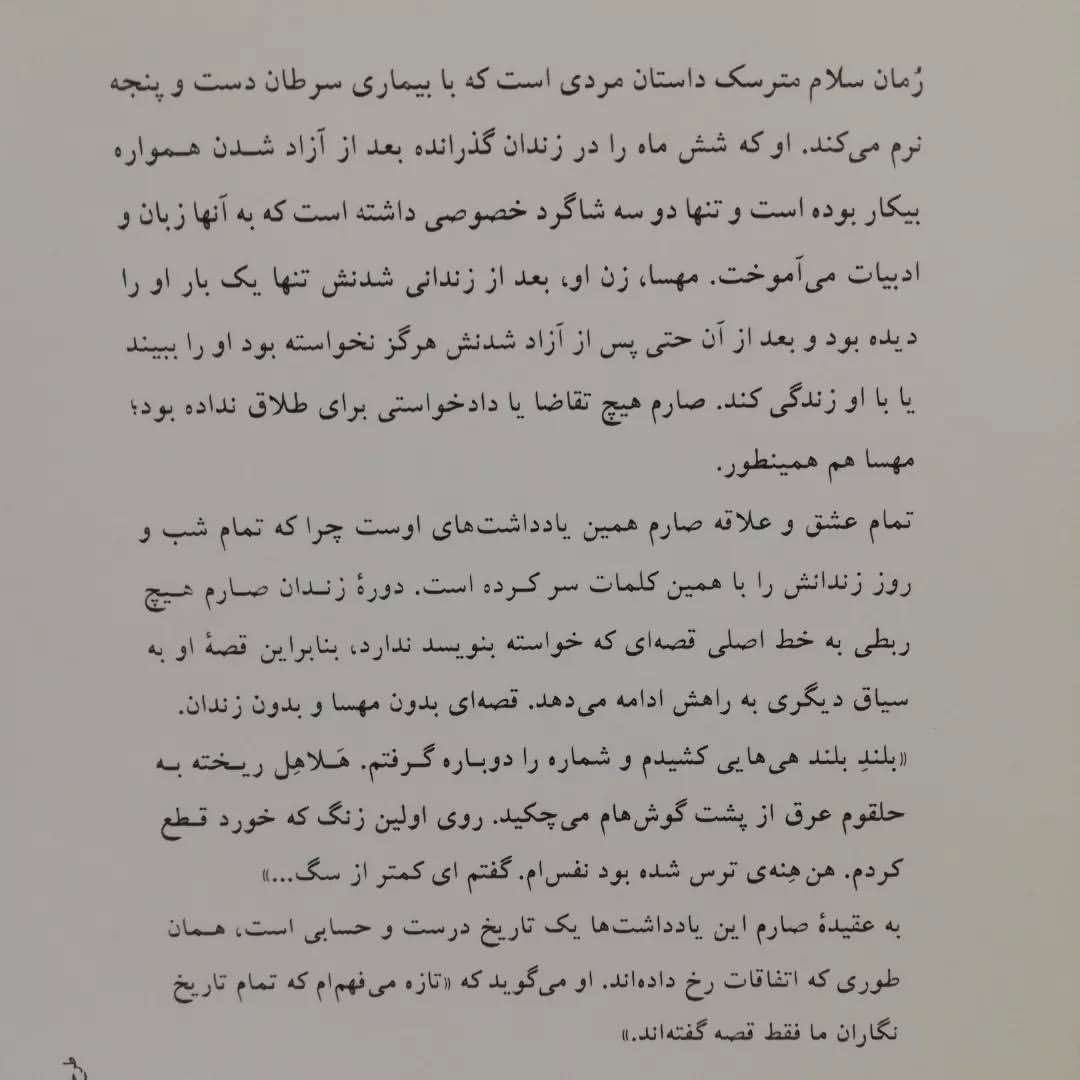 رُمان سلام مترسک داستان مردی است که با بیماری سرطان دست و پنجه
نرم می‌کند. او که شش ماه را در زندان گذرانده بعد از آزاد شدن همواره
بیکار بوده است و تنها دو سه شاگرد خصوصی داشته است که به آنها زبان و
ادبیات می‌آموخت. مهسا، زن او، بعد از زندانی شدنش تنها یک بار او را
دیده بود و بعد از آن حتی پس از آزاد شدنش هرگز نخواسته بود او را ببیند
یا با او زندگی کند. صارم هیچ تقاضا یا دادخواستی برای طلاق نداده بود؛
مهسا هم همینطور.
تمام عشق و علاقه صارم همین یادداشت‌های اوست چرا که تمام شب و
روز زندانش را با همین کلمات سر کرده است. دورهٔ زندان صارم هیچ
ربطی به خط اصلی قصه‌ای که خواسته بنویسد ندارد، بنابراین قصهٔ او به
سیاق دیگری به راهش ادامه می‌دهد. قصه‌ای بدون مهسا و بدون زندان.
«بلندِ بلند هی‌هایی کشیدم و شماره را دوباره گرفتم. هَلاهِل ریخته به
حلقوم عرق از پشت گوش‌هام می‌چکید. روی اولین زنگ که خورد قطع
کردم. هن‌هِنه‌ی ترس شده بود نفس‌ام. گفتم ای کمتر از سگ...»
به عقیدهٔ صارم این یادداشت‌ها یک تاریخ درست و حسابی است، همان
طوری که اتفاقات رخ داده‌اند. او می‌گوید که «تازه می‌فهم‌ام که تمام تاریخ
نگاران ما فقط قصه گفته‌اند.»